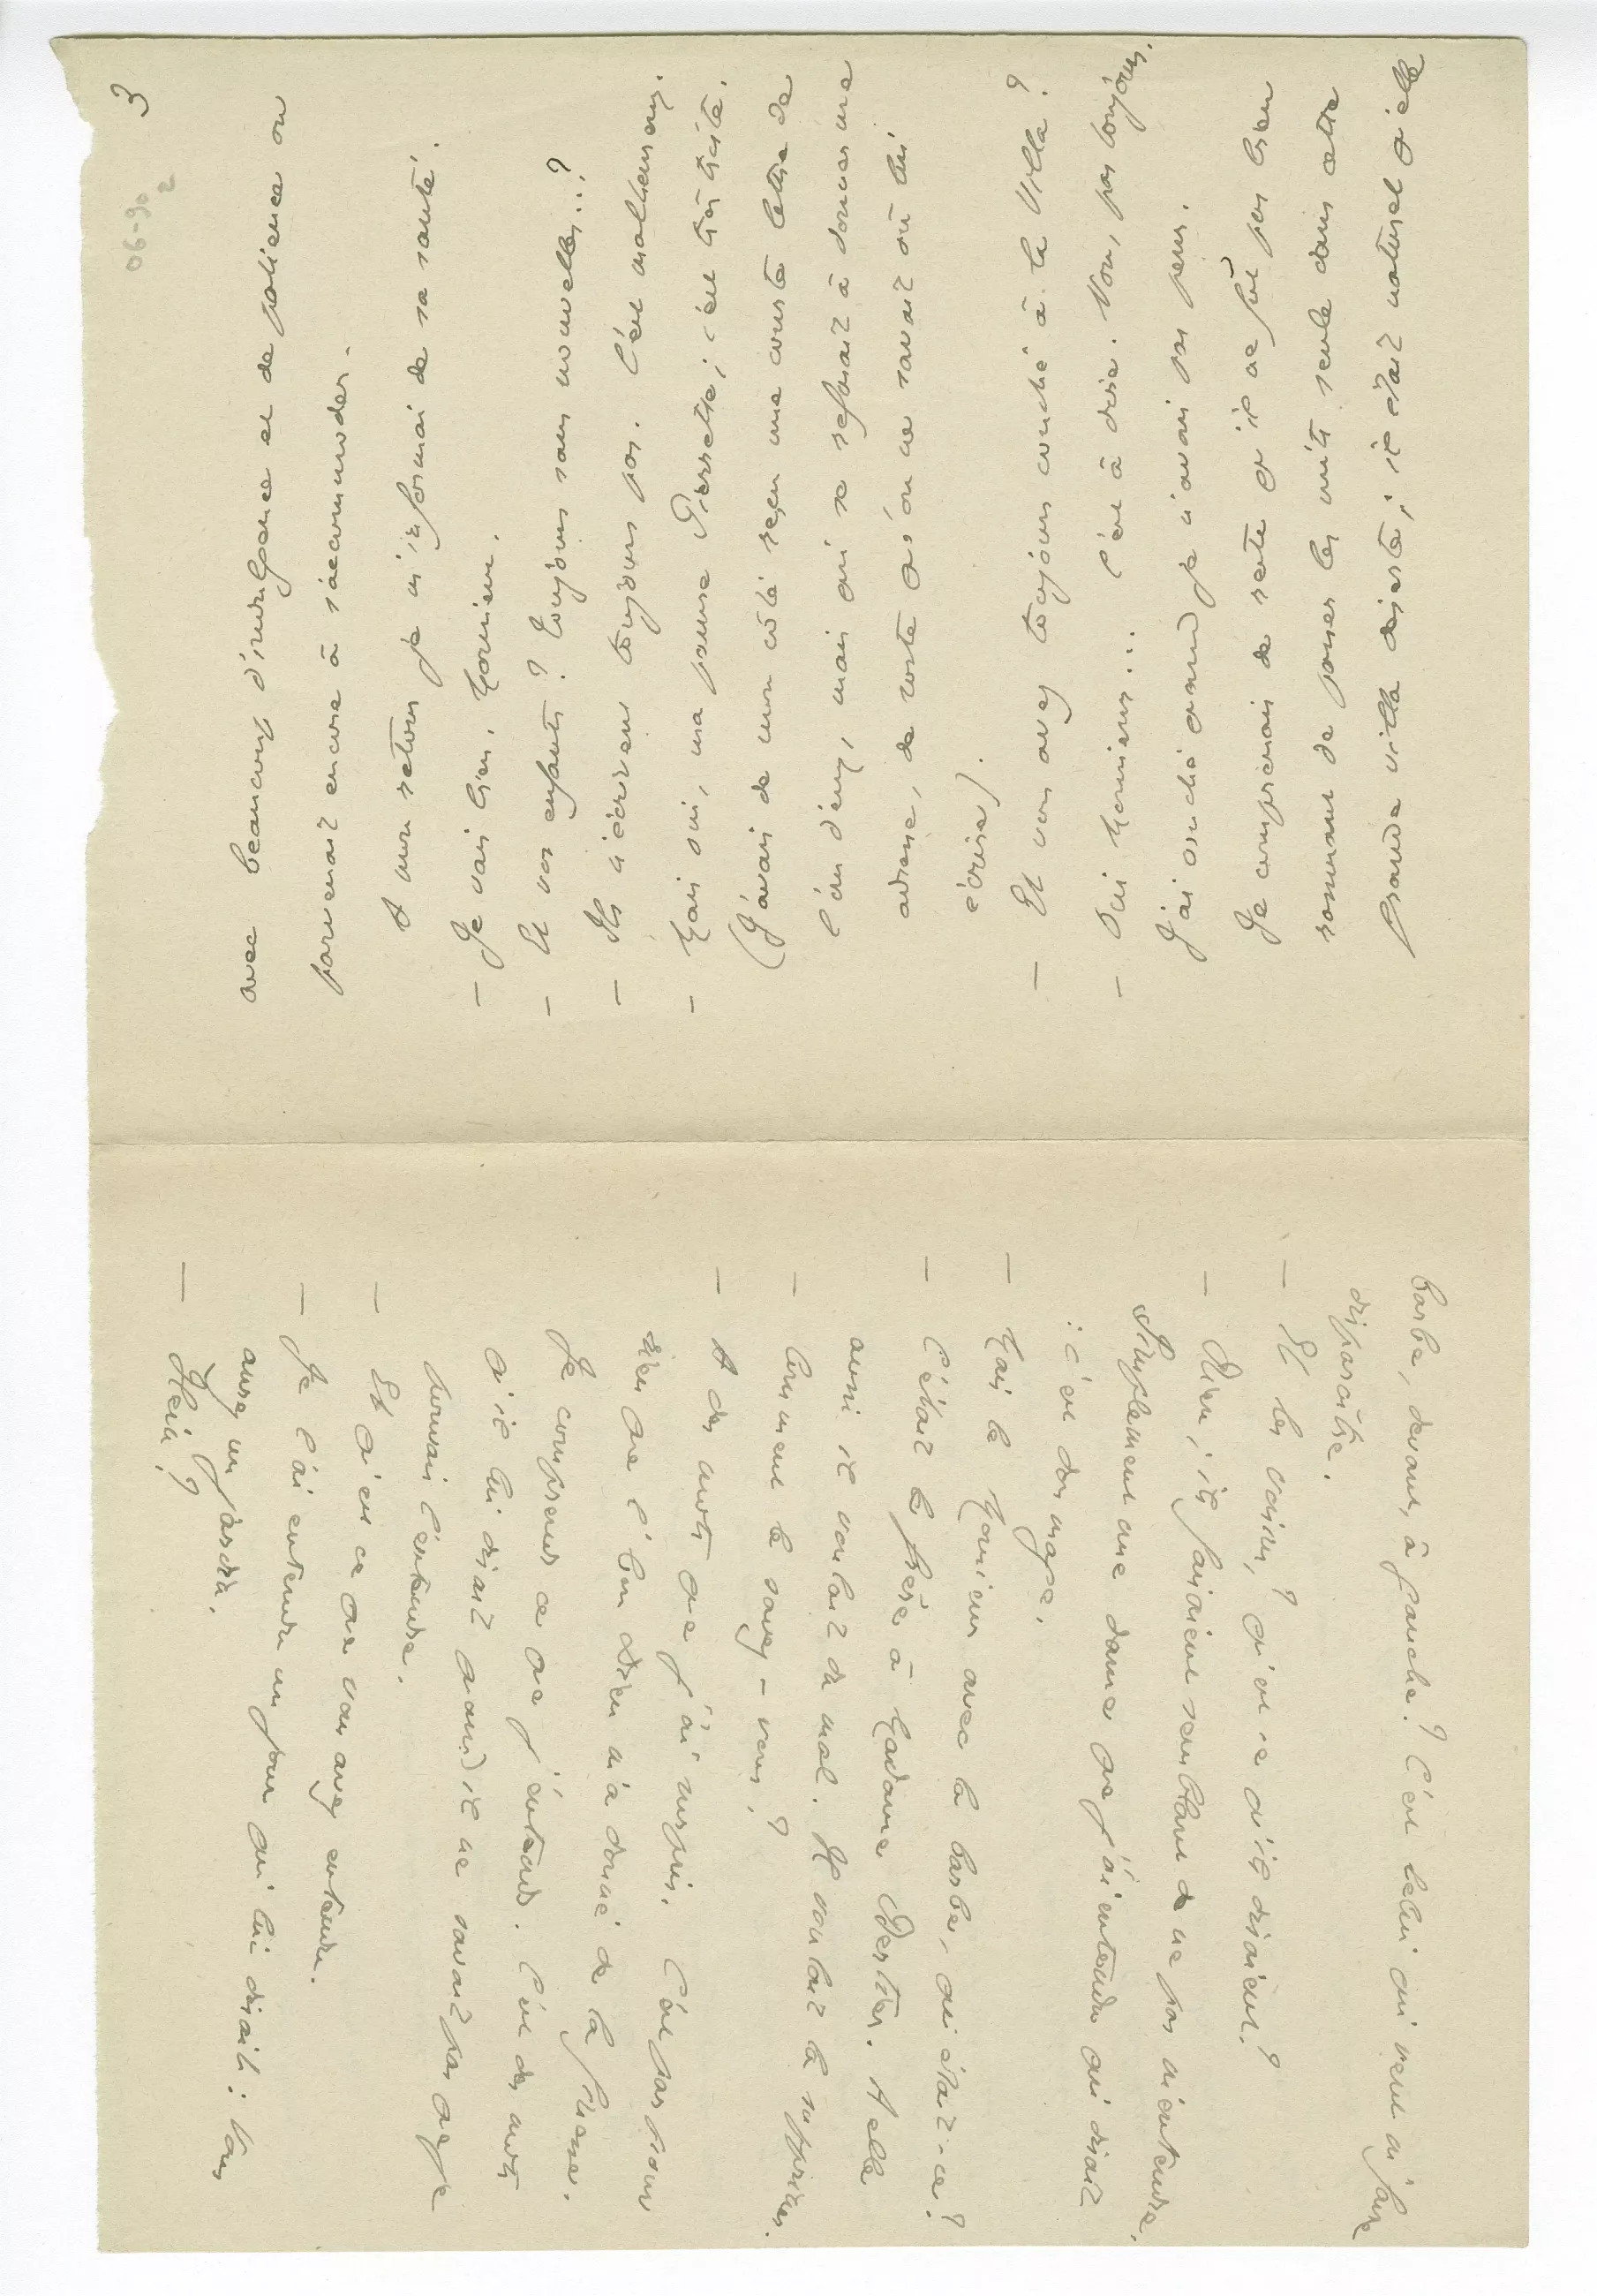 3
06-90
2
avec beaucoup d'indulgence et de patience on
parvenait encore à s'accommoder.
A mon retour je m'informai de sa santé.
— Je vais bien, Monsieur.
— Et vos enfants ? Toujours sans nouvelles...?
— Ils n'écrivent toujours pas. C'est malheureux.
— Mais oui, ma pauvre Pierrette, c'est très triste.
(J'avais de mon côté reçu une courte lettre de
l'un d'eux, mais qui se refusait à donner une
adresse, de sorte qu'on ne savait où lui
écrire).
— Et vous avez toujours couché à la Villa ?
— Oui Monsieur... c'est à dire. Non, pas toujours.
J'ai couché quand je n'avais pas peur.
Je comprenais de reste qu'il ne fût pas bien
rassurant de passer les nuits seule dans cette
grande villa déserte ; il était naturel qu'elle
barbe, devant, à gauche ? C'est celui qui veut m'faire
disparaître.
— Et les voisins, qu'est-ce qu'ils disaient ?
— Rien ; ils faisaient semblant de ne pas m'entendre.
Simplement une dame que j'ai entendu qui disait
: c'est dommage.
— Mais le Monsieur avec la barbe, qui était-ce ?
— C'était le frère à Madame . A elle
aussi il voulait du mal. Il voulait la supprimer.
— Comment le savez-vous ?
— A des mots que j'ai surpris. C'est pas pour
rien que l'bon Dieu m'a donné de la .
Je comprends ce que j'entends. C'est des mots
qu'il lui disait quand il ne savait pas que je
pouvais l'entendre.
— Et qu'est ce que vous avez entendu.
— Je l'ai entendu un jour qui lui disait : Vous
avez un jardin.
— Hein ?